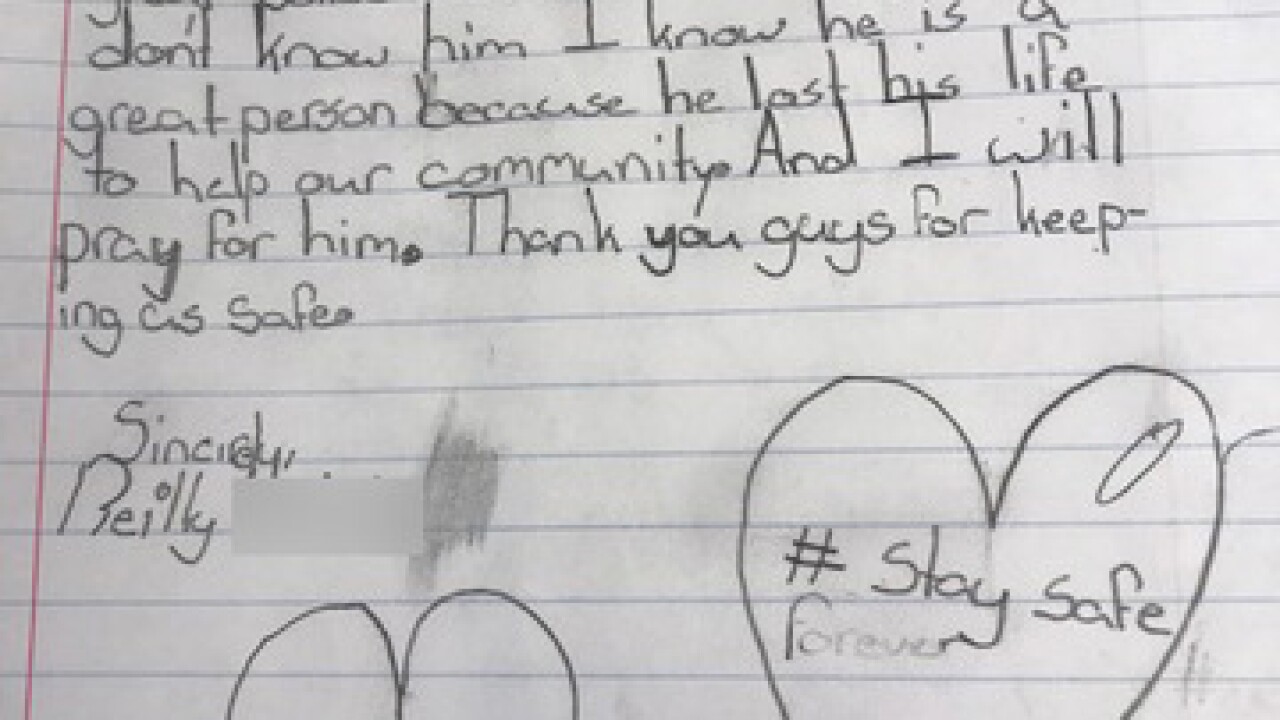 don't know him I know he is a
great person because he lost his life
to help our community. And I will
pray for him. Thank you guys for keep-
ing us safe.
Sincirly,
Reilly
# Stay Safe
forever